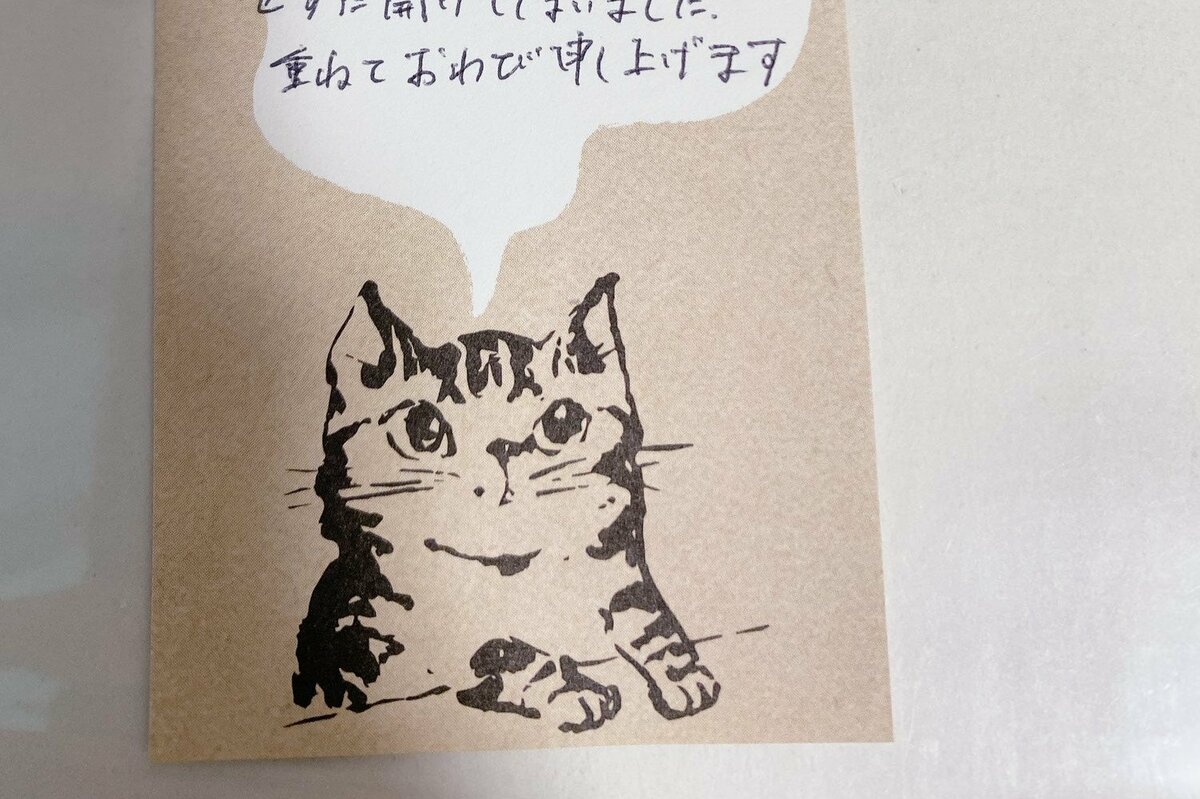 せずに開けてしまいました.
重ねておわび申し上げます